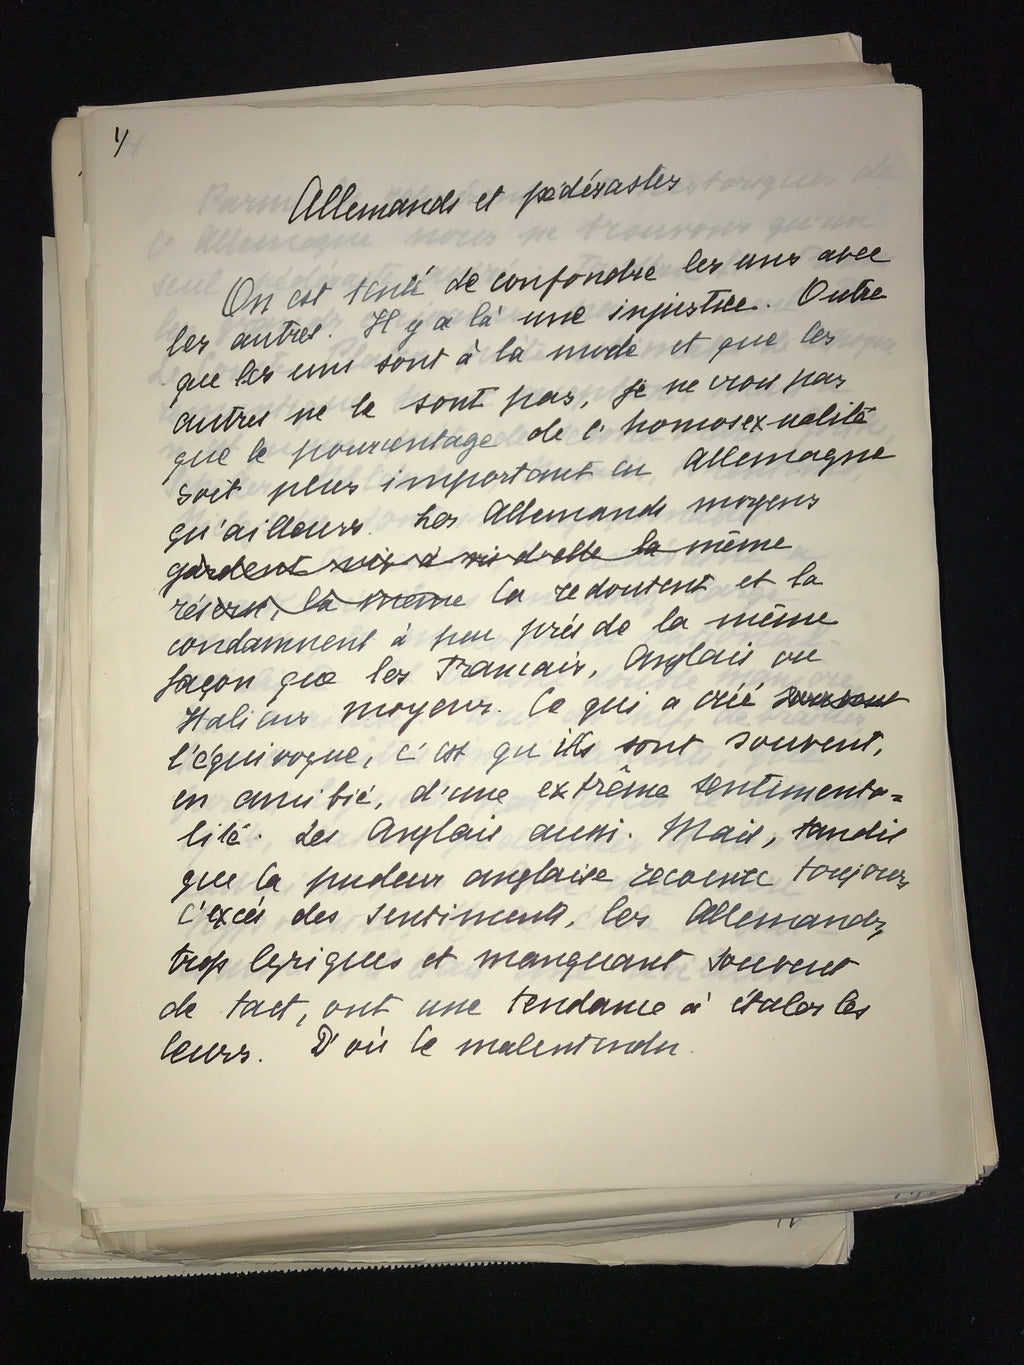 1/
Allemands et pédérastes
On est tenté de confondre les uns avec
les autres. Il y a là une injustice. Outre
que les uns sont à la mode et que les
autres ne le sont pas, je ne crois pas
que le pourcentage de l'homosexualité
soit plus important en Allemagne
qu'ailleurs. Les Allemands moyens
gardent vis à vis d'elle la même
réserve, la même la redoutent et la
condamnent à peu près de la même
façon que les Français, Anglais ou
Italiens moyens. Ce qui a créé souvent
l'équivoque, c'est qu'ils sont souvent,
en amitié, d'une extrême sentimenta=
lité. Les Anglais aussi. Mais, tandis
que la pudeur anglaise recouvre toujours
l'excès des sentiments, les Allemands,
trop lyriques et manquant souvent
de tact, ont une tendance à étaler les
leurs. D'où le malentendu.